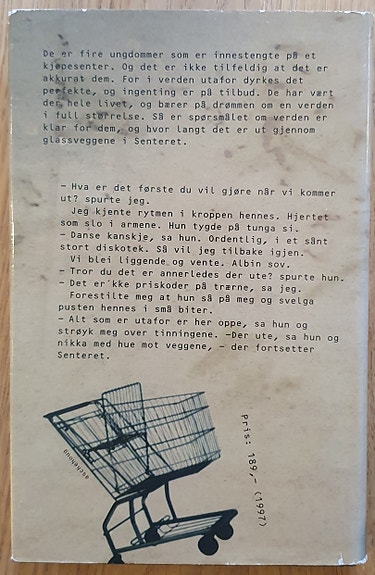 De er fire ungdommer som er innestengte på et
kjøpesenter. Og det er ikke tilfeldig at det er
akkurat dem. For i verden utafor dyrkes det
perfekte, og ingenting er på tilbud. De har vært
der hele livet, og bærer på drømmen om en verden
i full størrelse. Så er spørsmålet om verden er
klar for dem, og hvor langt det er ut gjennom
glassveggene i Senteret.
– Hva er det første du vil gjøre når vi kommer
ut? spurte jeg.
Jeg kjente rytmen i kroppen hennes. Hjertet
som slo i armene. Hun tygde på tunga si.
– Danse kanskje, sa hun. Ordentlig, i et sånt
stort diskotek. Så vil jeg tilbake igjen.
Vi blei liggende og vente. Albin sov.
– Tror du det er annerledes der ute? spurte hun.
– Det er´kke priskoder på trærne, sa jeg.
Forestilte meg at hun så på meg og svelga
pusten hennes i små biter.
– Alt som er utafor er her oppe, sa hun og
strøyk meg over tinningene. –Der ute, sa hun og
nikka med hue mot veggene, – der fortsetter
Senteret.
aschehoug
Pris: 189,– (1997)